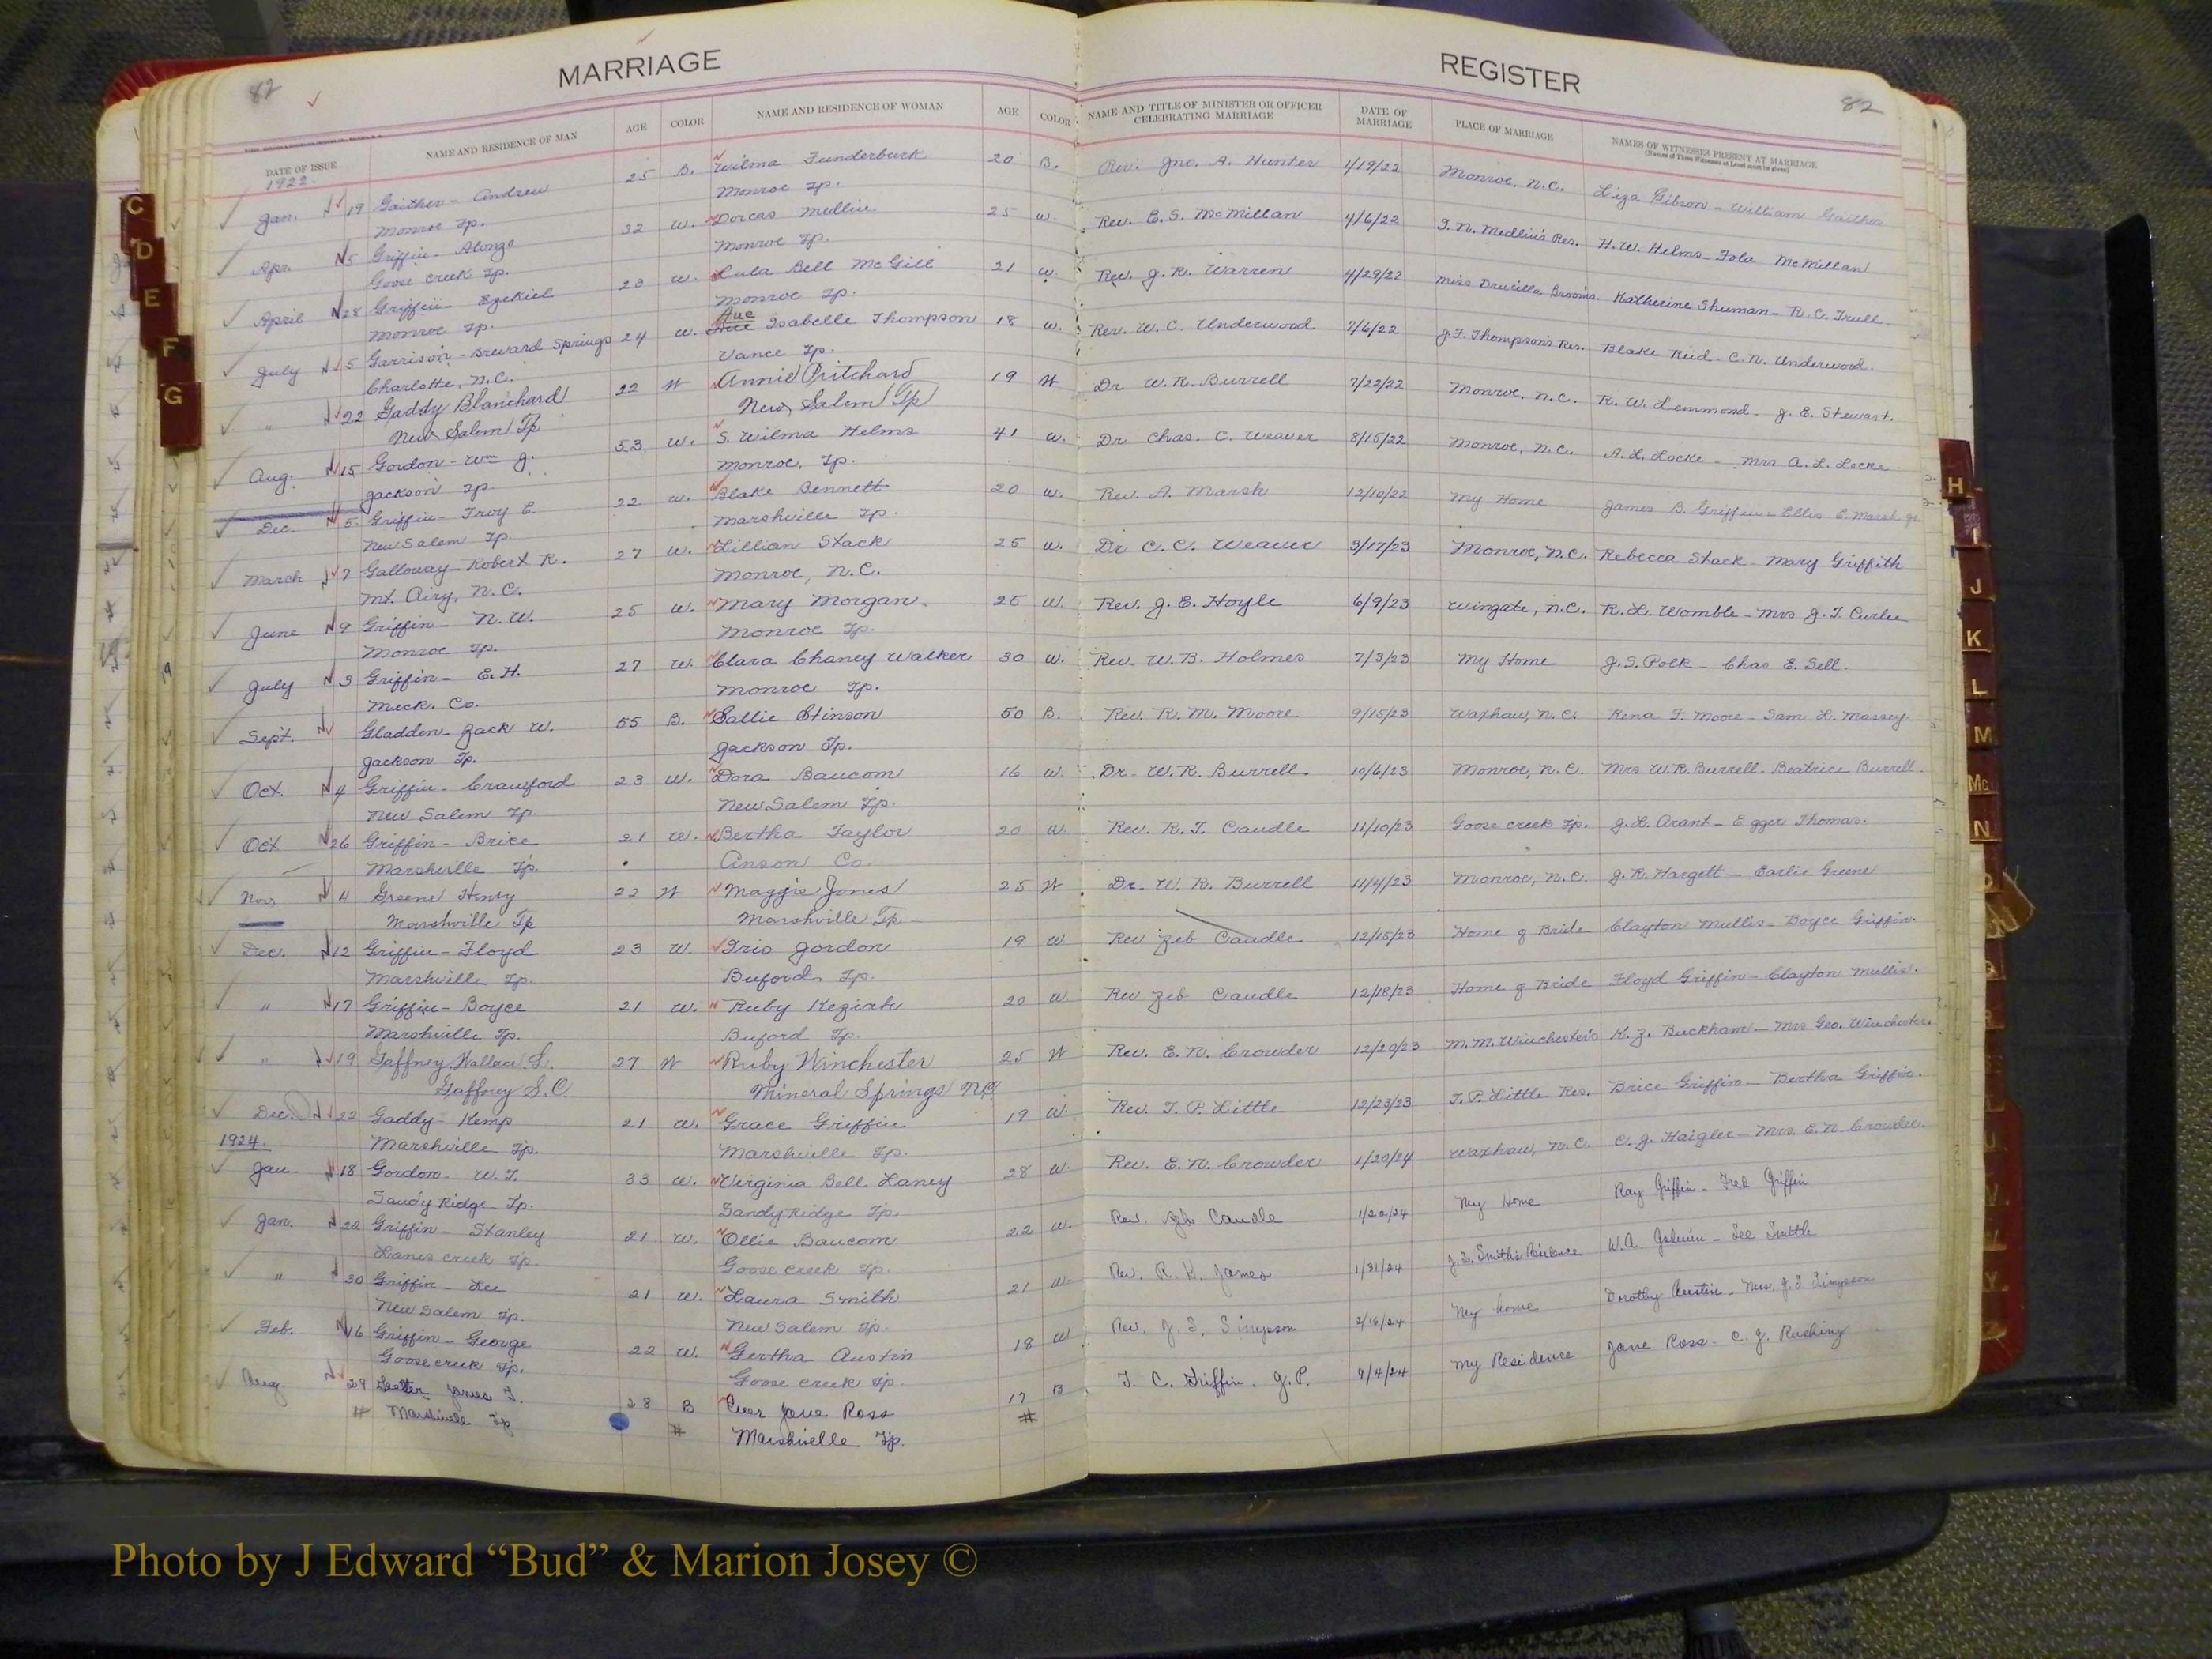 MARRIAGE
REGISTER
82
82
DATE OF ISSUE
NAME AND RESIDENCE OF MAN
AGE
COLOR
NAME AND RESIDENCE OF WOMAN
AGE
COLOR
NAME AND TITLE OF MINISTER OR OFFICER CELEBRATING MARRIAGE
DATE OF MARRIAGE
PLACE OF MARRIAGE
NAMES OF WITNESSES PRESENT AT MARRIAGE
(Names of Three Witnesses at Least must be given)
1922.
Jan. 19 Gaither - Andrew 25 B. Wilma Funderburk 20 B. Rev. Jno. A. Hunter 1/19/22 Monroe, N.C. Liza Gibson - William Gaither
Monroe Tp. Monroe Tp.
Apr. 5 Griffin - Alonzo 32 W. Dorcas Medlin 25 W. Rev. E. S. McMillan 4/6/22 Medlin's Res. H. W. Helms - McMillan
Goose Creek Tp. Monroe Tp.
April 28 Griffin - Ezekiel 23 W. Lula Bell McGill 21 W. Rev. J. R. Warren 4/29/22 Miss Drucilla Broom's. Katherine Shuman - R. C. Trull
Monroe Tp. Monroe Tp.
July 5 Garrison - Brevard Springs 24 W. Isabelle Thompson 18 W. Rev. W. C. Underwood 7/6/22 J. F. Thompson's Res. Blake Reid - C. N. Underwood.
Charlotte, N.C. Vance Tp.
" 22 Gaddy Blanchard 22 W Annie Pritchard 19 W Dr W. R. Burrell 7/22/22 Monroe, N.C. R. W. Lemmond - J. E. Stewart.
New Salem Tp New Salem Tp
Aug. 15 Gordon - Wm J. 53 W. S. Wilma Helms 41 W. Dr Chas. C. Weaver 8/15/22 Monroe, N.C. A. L. Locke - Mrs A. L. Locke
Jackson Tp. Monroe, Tp.
Dec. 5 Griffin - Troy E. 22 W. Blake Bennett 20 W. Rev. A. Marsh 12/10/22 My Home James B. Griffin - Ellis E. Marsh Jr.
New Salem Tp. Marshville Tp.
March 7 Galloway - Robert R. 27 W. Lillian Stack 25 W. Dr C. C. Weaver 3/17/23 Monroe, N.C. Rebecca Stack - Mary Griffith
Mt. Airy, N.C. Monroe, N.C.
June 9 Griffin - N. W. 25 W. Mary Morgan. 25 W. Rev. J. E. Hoyle 6/9/23 Wingate, N.C. R. L. Womble - Mrs J. T. Curlee
Monroe Tp. Monroe Tp.
July 3 Griffin - E. H. 27 W. Clara Chaney Walker 30 W. Rev. W. B. Holmes 7/3/23 My Home J. S. Polk - Chas E. Sell.
Meck. Co. Monroe Tp.
Sept. Gladden - Zack W. 55 B. Sallie Stinson 50 B. Rev. R. M. Moore 9/15/23 Waxhaw, N.C. Rena F. Moore - Sam H. Massey
Jackson Tp. Jackson Tp.
Oct. 4 Griffin - Crawford 23 W. Dora Baucom 16 W. Dr. W. R. Burrell. 10/6/23 Monroe, N.C. Mrs W. R. Burrell. Beatrice Burrell.
New Salem Tp. New Salem Tp.
Oct 26 Griffin - Brice 21 W. Bertha Taylor 20 W. Rev. R. T. Caudle 11/10/23 Goose Creek Tp. J. L. Arant - Egger Thomas.
Marshville Tp. Anson Co.
Nov 4 Greene Henry 22 W Maggie Jones 25 W Dr. W. R. Burrell 11/4/23 Monroe, N.C. J. R. Hargett - Earlie Greene
Marshville Tp Marshville Tp
Dec. 12 Griffin - Floyd 23 W. Iris Gordon 19 W Rev Zeb Caudle 12/15/23 Home of Bride Clayton Mullis - Boyce Griffin.
Marshville Tp. Buford Tp.
" 17 Griffin - Boyce 21 W. Ruby Keziah 20 W Rev Zeb Caudle 12/18/23 Home of Bride Floyd Griffin - Clayton Mullis.
Marshville Tp. Buford Tp.
" 19 Gaffney, Wallace S. 27 W Ruby Winchester 25 W Rev. E. N. Crowder 12/20/23 M. M. Winchester's K. Z. Buckham - Mrs Geo. Winchester.
Gaffney S.C. Mineral Springs N.C.
Dec. 22 Gaddy - Kemp 21 W. Grace Griffin 19 W. Rev. T. P. Little 12/23/23 T. P. Little Res. Brice Griffin - Bertha Griffin.
1924. Marshville Tp. Marshville Tp.
Jan 18 Gordon - W. T. 33 W. Virginia Bell Laney 28 W. Rev. E. N. Crowder 1/20/24 Waxhaw, N.C. C. J. Haigler - Mrs. E. N. Crowder.
Sandy Ridge Tp. Sandy Ridge Tp.
Jan. 22 Griffin - Stanley 21 W. Ollie Baucom 22 W. Rev. Zeb Caudle My Home Ray Griffin - Griffin
Lanes Creek Tp. Goose Creek Tp.
" 30 Griffin - Lee 21 W. Laura Smith 21 W. Rev. R. H. James 1/31/24 J. S. Smith's Residence W. A. - Lee Smith
New Salem Tp. New Salem Tp.
Feb. 16 Griffin - George 22 W. Gertha Austin 18 W Rev. J. S. Simpson 2/16/24 My home Dorothy Austin - Mrs. J. S. Simpson
Goose Creek Tp. Goose Creek Tp.
Aug. 29 James T. 28 B Jane Ross 17 B T. C. Griffin, J.P. 9/4/24 My Residence Jane Ross - C. J. Rushing
# Marshville Tp # Marshville Tp. #
C
D
E
F
G
H
I
J
K
L
M
Mc
N
Photo by J Edward “Bud” & Marion Josey ©